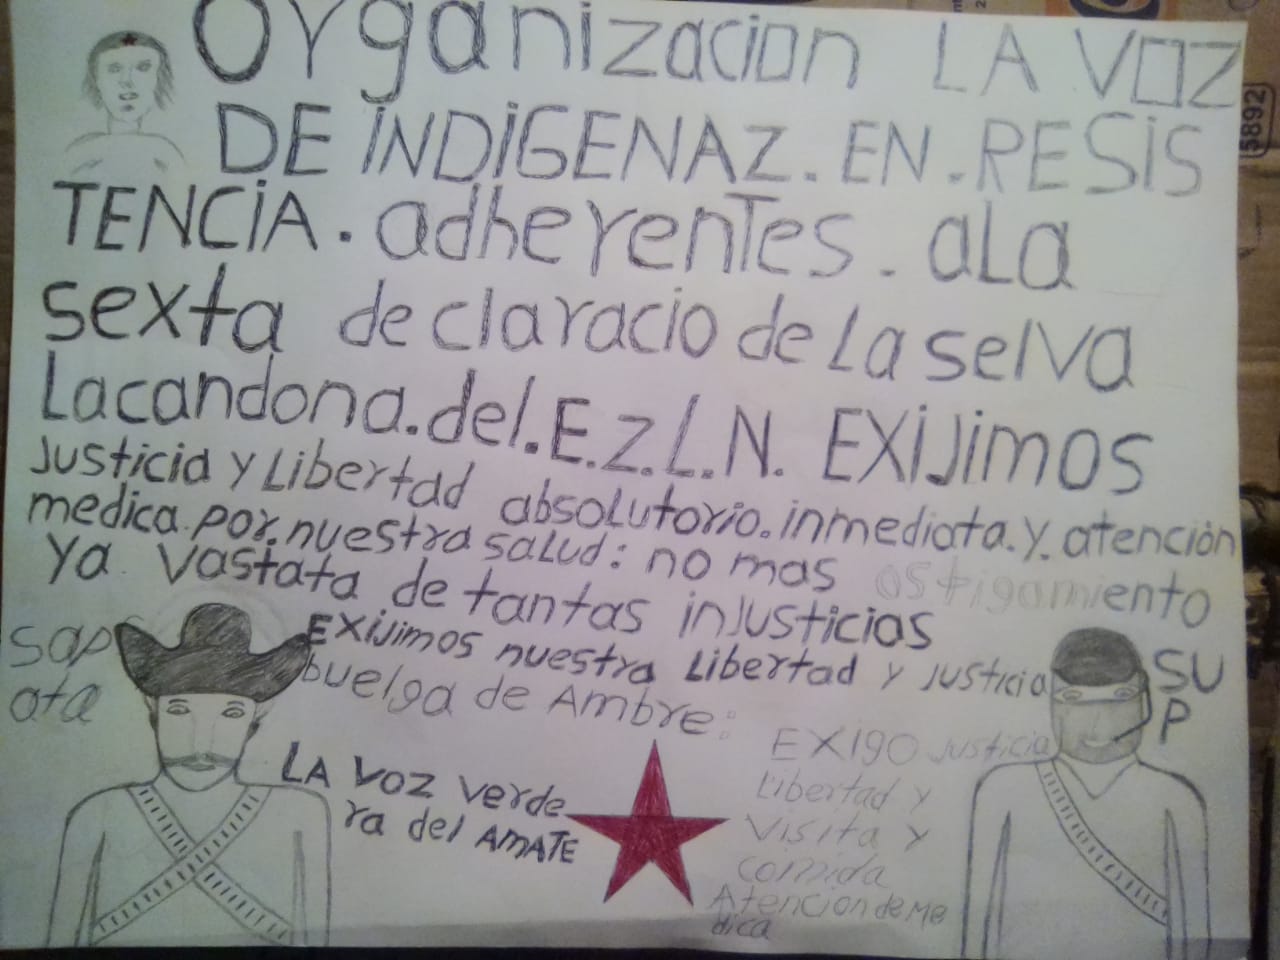 Organizacion LA VOZ
DE INDIGENAZ. EN. RESIS
TENCIA. adherentes. aLa
sexta declaracio de La selva
Lacandona. del. E.Z.L.N. EXIJimos
Justicia y Libertad absolutorio. inmediata. y. atención
medica. por. nuestra salud: no mas ostigamiento
ya vastata de tantas injusticias
EXIJimos nuestra Libertad y justicia
buelga de Ambre:
sap
ata
SU
P
LA VOZ verde
ra del AMATE
EXIgO Justicia
Libertad y
Visita y
comida
Atencion de Me
dica
5892